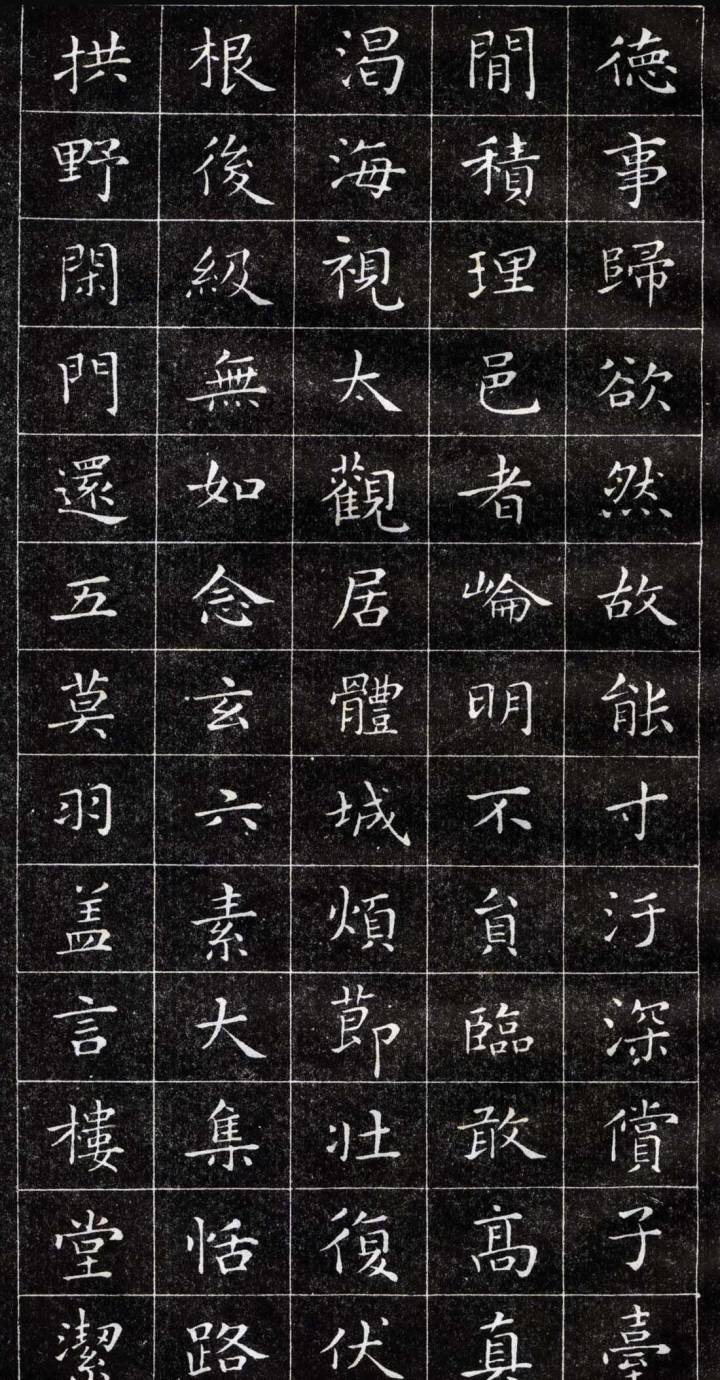 德事歸欲然故能寸汙深償子臺
閒積理邑者崘明不負臨敢高真
渴海視太觀居體城煩莭壯復伏
根後級無如念玄六素大集恬路
拱野閑門還五莫羽盖言樓堂潔